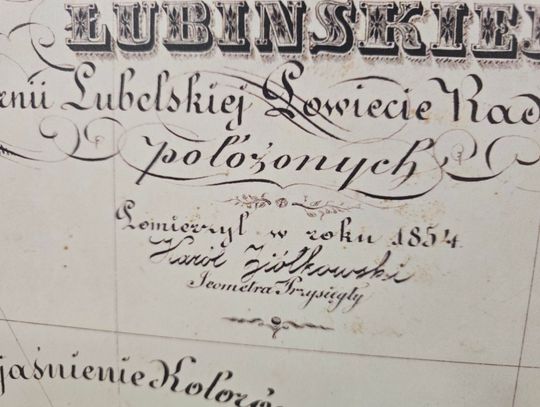 ŁUBIŃSKIEJ
rnii Lubelskiej Powiecie Rad
położonych
Pomierzył w roku 1854
Karol Ziółkowski
Jeometra Przysięgły
jaśnienie Kolorów